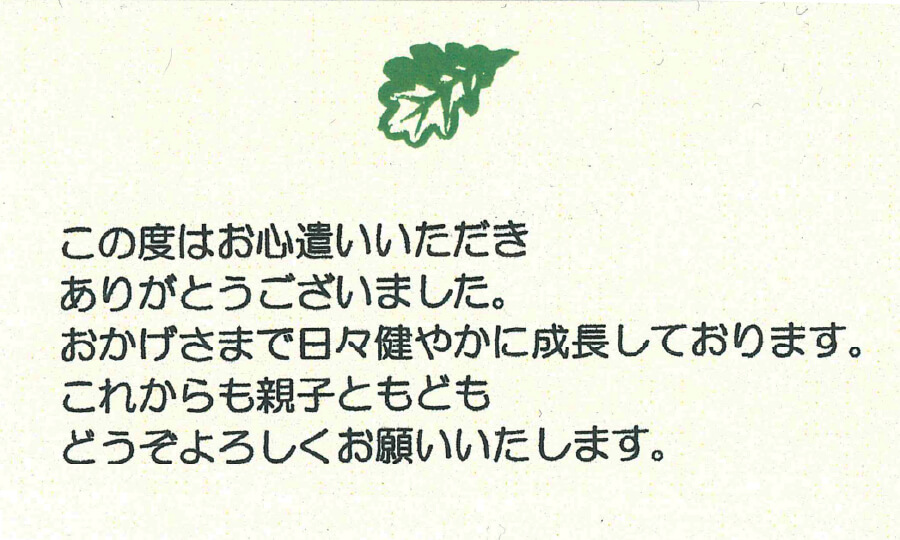 この度はお心遣いいただき
ありがとうございました。
おかげさまで日々健やかに成長しております。
これからも親子ともども
どうぞよろしくお願いいたします。